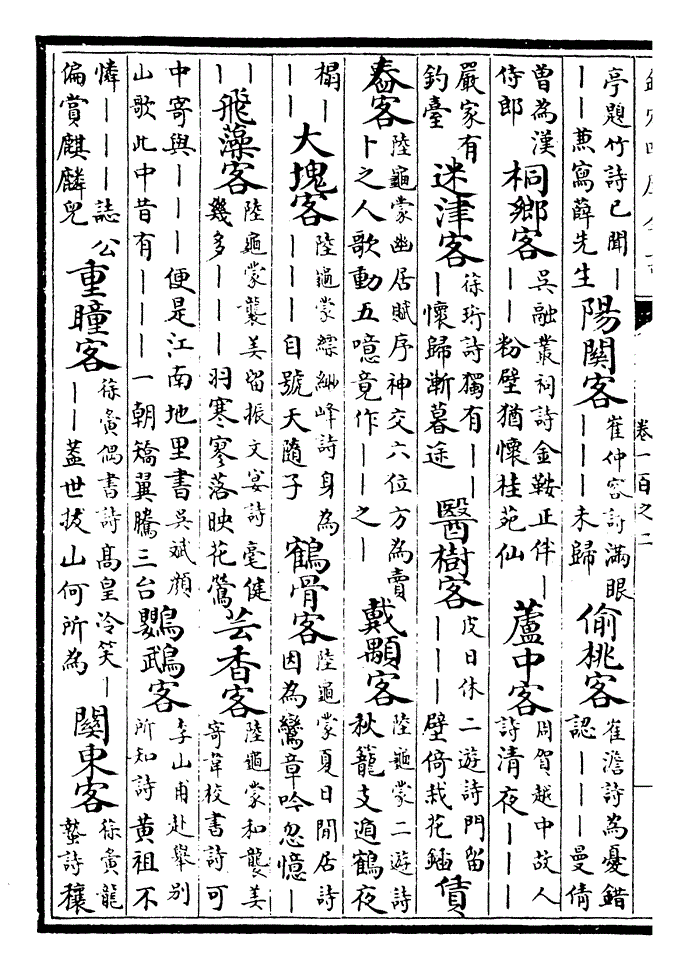 卷一百之二
亭題竹詩已聞｜｜｜燕窩薛先生 陽關客 崔仲容詩滿眼｜｜｜未歸 偷桃客 崔澹詩為憂錯認｜｜｜曼倩
曽為漢侍郎 桐鄉客 吳融叢祠詩金鞍正伴｜｜｜粉壁猶懷桂苑仙 蘆中客 周賀越中故人詩清夜｜｜｜
嚴家有釣臺 迷津客 徐珩詩獨有｜｜｜懷歸漸暮途 醫樹客 皮日休二遊詩門留｜｜｜壁倚栽花鍤 賃
舂客 陸龜蒙幽居賦序神交六位方為賣卜之人歌動五噫竟作｜｜之｜ 戴顒客 陸龜蒙二遊詩秋籠支遁鶴夜
榻｜｜｜ 大塊客 陸龜蒙縹緲峰詩身為｜｜｜自號天隨子 鶴骨客 陸龜蒙夏日閒居詩因為鸞章吟忽憶｜
｜｜ 飛藻客 陸龜蒙襲美留振文宴詩毫健幾多｜｜｜羽寒寒寥落映花鶯 芸香客 陸龜蒙和襲美寄韋校書詩可
中寄與｜｜｜便是江南地里書吳斌顔山歌此中昔有｜｜｜一朝矯翼騰三台 鸚鵡客 李山甫赴舉別所知詩黄祖不
憐｜｜｜誌公偏賞麒麟兒 重瞳客 徐夤偶書詩高皇冷笑｜｜｜蓋世拔山何所為 關東客 徐夤龍蟄詩穰